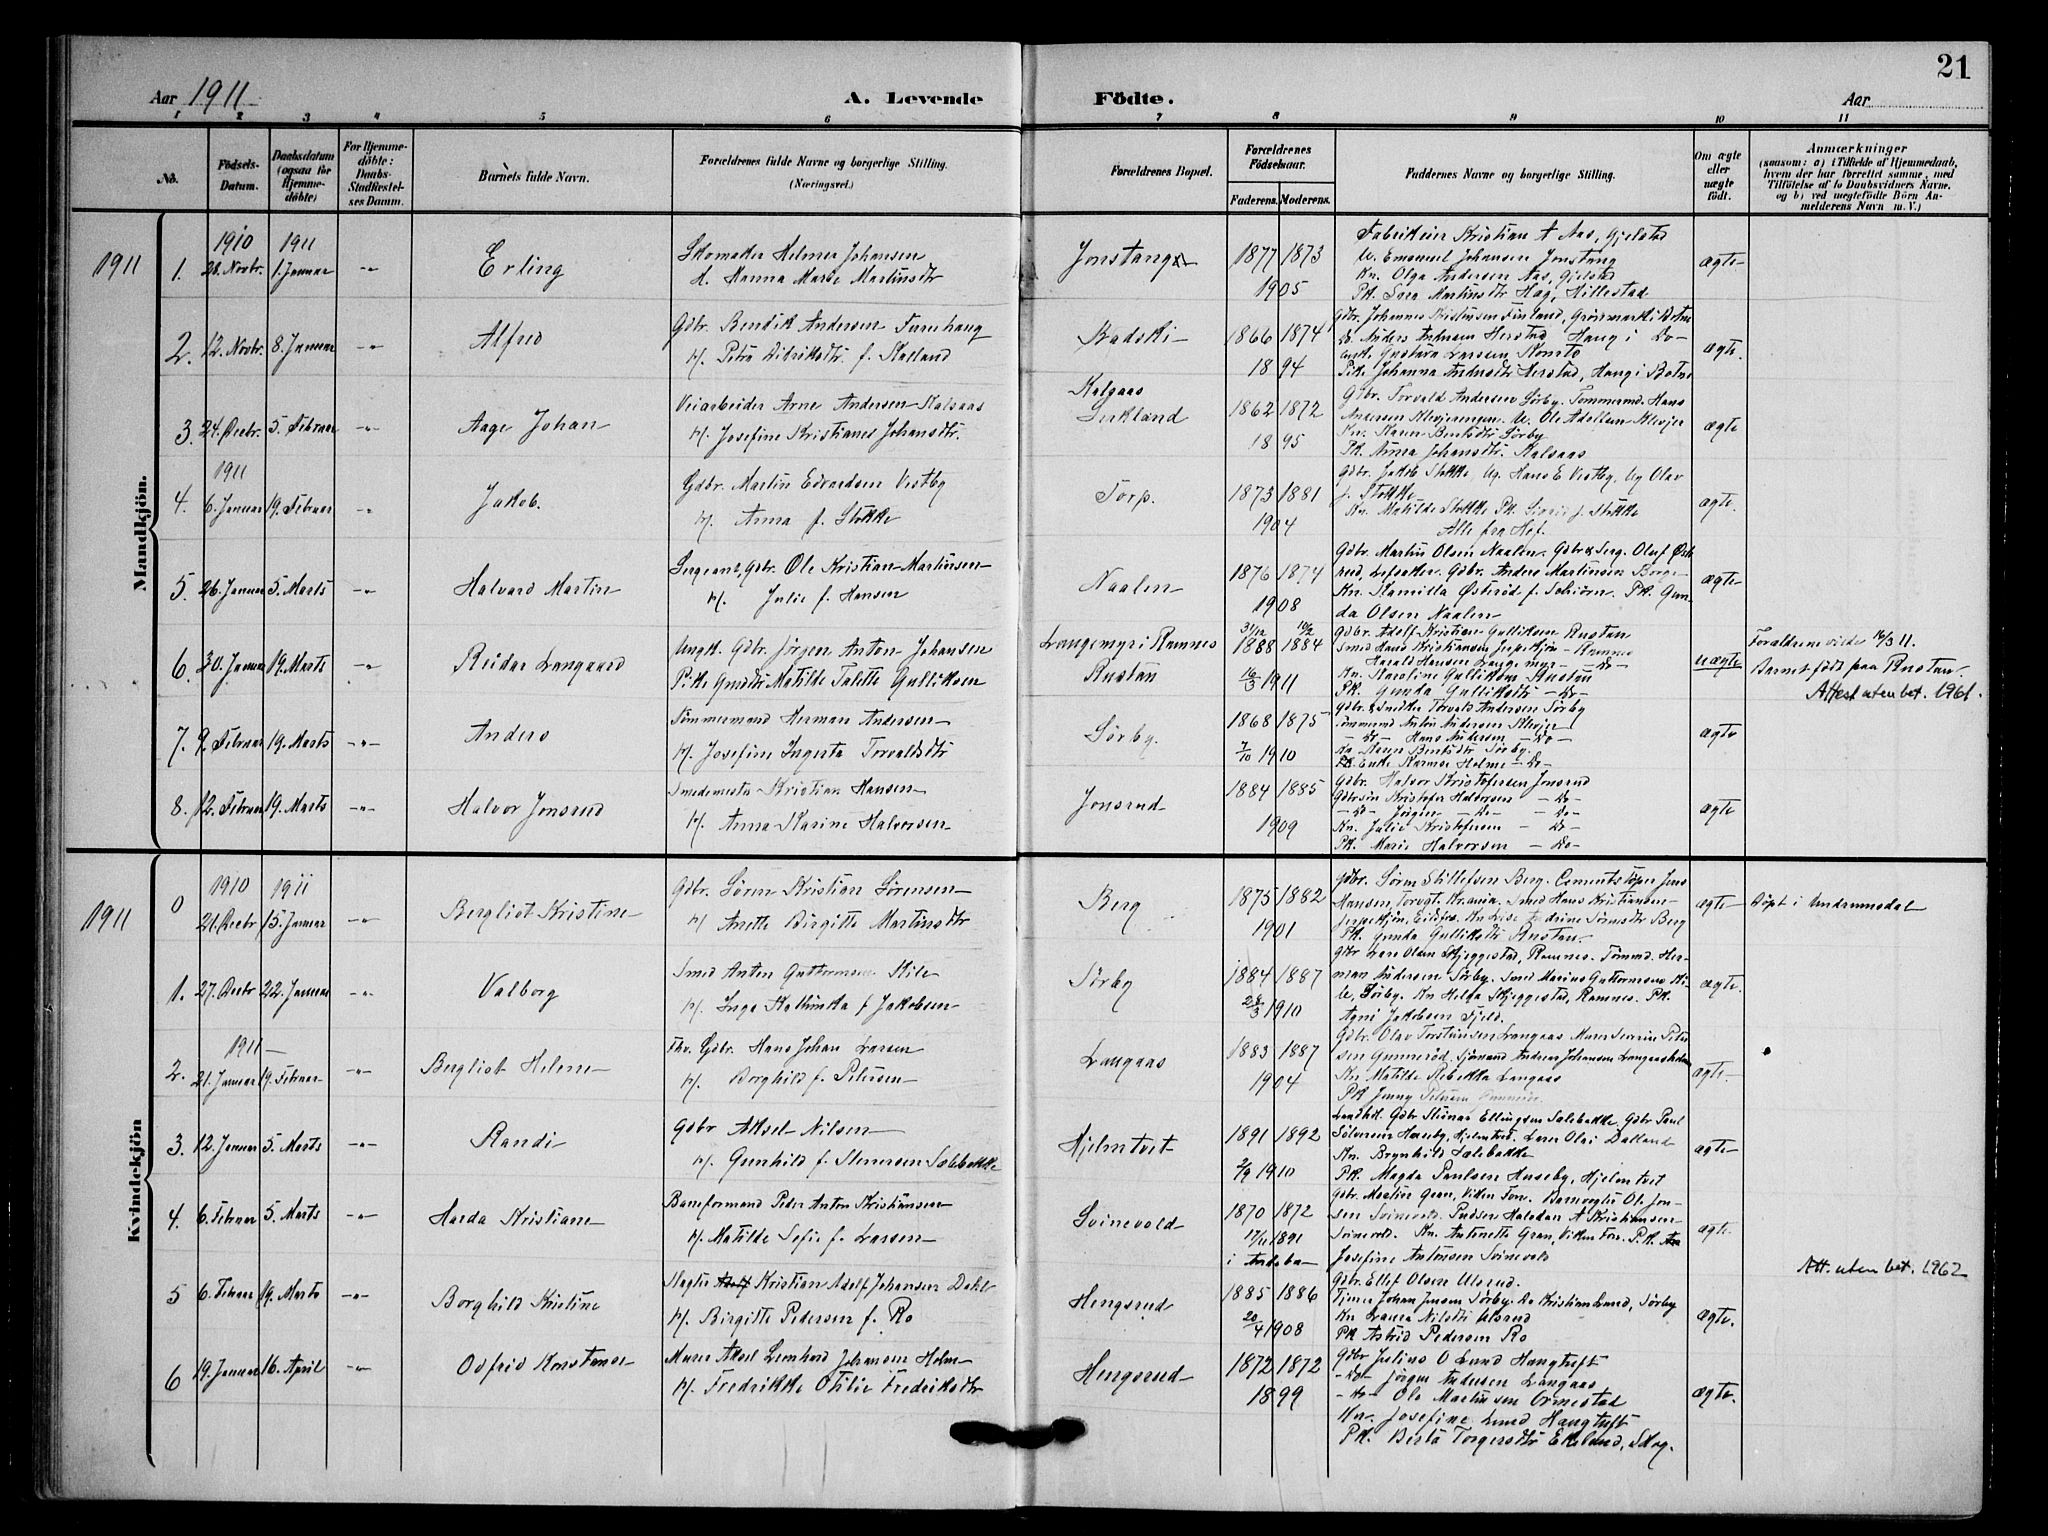 21
Aar 1911
A. Levende
Födte.
Aar
1 2 3 4 5 6 7 8 9 10 11
No.
Födsels-Datum.
Daabsdatum (ogsaa for Hjemmedöbte)
For Hjemmedöbte: Daabs-Stadfæstelses Datum.
Barnets fulde Navn.
Forældrenes fulde Navne og borgerlige Stilling.
(Næringsvei.)
Forældrenes Bopæl.
Forældrenes Födselsaar.
Faderens. Moderens.
Faddernes Navne og borgerlige Stilling.
Om ægte eller uægte födt.
Anmærkninger
(saasom: a) i Tilfælde af Hjemmedaab,
hvem der har forrettet samme, med
Tilföielse af to Daabsvidners Navne.
og b) ved uægtefödte Börn An-
melderens Navn m. V.)
Mandkjön.
1911
1910 1911
1. 28. Novbr. 1. Januar -"- Erling
Skomaker Helmer Johansen
H. Hanna Marie Martinsdtr
Jonstang
1877 1873
1905
Fabrikeier Kristian A Aas, Gjelstad
U. Emanuel Johansen Jonstang
Kn. Olga Andersen Aas, Gjelstad
Pk. Sara Martinsdtr Hag, Hillestad
ægte
2. 12. Novbr. 8. Januar -"- Alfred
Gdbr. Bendik Andersen Furuhaug
H. Petra Didriksdtr f. Kalland
Badski
1866 1874
1894
Gdbr. Johannes Kristensen Finland, Grönmark i Botne
Do. Anders Andersen Herstad Haug i Do
Enk. Gustava Larsen
Pik. Johanna Andersdtr Herstad, Haug i Botne
ægte.
3. 24. Decbr. 5. Februar -"- Aage Johan
Veiarbeider Arne Andersen Kalsaas
H. Josefine Kristiane Johansdtr.
Kalsaas
Serkland
1862 1872
1895
Gbr. Torvald Andersen Sörby. Tömmermd. Hans
Andersen U. Ole Adolfsen
Kn. Karen Bentsdtr Sörby
Pk. Anna Johansdtr. Kalsaas
ægte
1911
4. 6. Januar 19. Februar -"- Jakob.
Gdbr. Martin Edvardsen Vestby
H. Anna f. Stokke
Torp.
1873 1881
1904
Gdbr. Jakob Stokke, Ug. Hans E Vestby, Ug Olav
J. Stokke
Kn. Matilde Stokke Pk. Sigrid J. Stokke
Alle fra Hof.
ægte.
5. 26. Januar 5. Marts -"- Halvard Martin
Sergeant, Gdbr. Ole Kristian Martinsen
H. Julie f. Hansen
Naalen
1876 1874
1908
Gdbr. Martin Olsen Naalen. Gdbr & Serg. Oluf Öst-
röd, Lefsaker. Gdbr. Anders Martinsen Borge
Kn. Kamilla Österöd f. Schiörn. Pk. Gun-
da Olsen Naalen
ægte
6. 30. Januar 19. Marts -"- Reidar Langaard
Ungk. Gdbr. Jörgen Anton Johansen
Pike Gmdtr Matilde Talette Gulliksen
Langemyr i Ramnes
Rustan
31/12 10/2
1888 1884
16/3 1911
Gdbr. Adolf Kristian Gulliksen Rustan
Smed Hans Kristiansen Jerpekjön Ramnes
Harald Hansen Langemyr - Do -
Kn. Karoline Gulliksen Rustan
Pk. Gunda Gulliksdtr - Do -
uægte
Foraldrene viede 16/3 11.
Barnet födt paa Rustan.
Attest uten bet. 1961.
7. 9. Februar 19. Marts -"- Anders
Tömmermand Herman Andersen
H. Josefine Ingerta Torvaldsdtr
Sörby.
1868 1875
7/10 1910
Gdbr. & Snedker Torvald Andersen Sörby
Tömmermd Anton Andersen
- Do - Hans Andersen - Do -
Kn. Karen Bentsdtr Sörby.
Pk. Enke Karense Helene - Do -
ægte
8. 12. Februar 19. Marts -"- Halvor Jonsrud
Smedemester Kristian Hansen
H. Anna Karine Halvorsen
Jonsrud
1884 1885
1909
Gdbr. Halvor Kristofersen Jonsrud
Gdbrsön Kristofer Halvorsen - Do -
- Do - Jörgen - Do - - Do -
Kn. Julie Kristofersen - Do -
Pk. Marie Halvorsen - Do -
ægte
Kvindekjön
1911
1910 1911
0 21. Decbr 15. Januar -"- Bergliot Kristine
Gdbr. Sören Kristian Sörensen
H. Anette Birgitte Martinsdtr
Berg
1875 1882
1901
Gdbr. Sören Stillefsen Berg. Cementstöper Jens
Hansen, Torvgt. Kr.ania. Smed Hans Kristiansen
Jerpekjön, Eidsfos. Kn Lise Andrine Sörensdtr Berg
Pk. Gunda Gulliksdtr Rustan.
ægte
Döpt i Vivestad
1. 27. Decbr 22. Januar -"- Valborg
Smed Anton Guttormsen Kile
H. Inga Kathinka f Jakobsen
Sörby
1884 1887
28/3 1910
Gdbr Lars Olsen Skjeggestad, Ramnes. Tömmd. Her-
man Andersen Sörby. Smed Marius Guttormsen Ki-
le, Sörby. Kn Helga Skjeggestad, Ramnes. Pk.
Agni Jakobsen Fjeld.
ægte.
1911
2. 21. Januar 19. Februar -"- Bergliot Helene
Fhv. Gdbr. Hans Johan Larsen
H. Borghild f. Petersen
Langaas
1883 1887
1904
Gdbr. Olav Torstensen Langaas Murer Severin Peter-
sen Gunneröd. Sjömand Andreas Johansen Langaasholmen
Kn Matilde Rebekka Langaas
Pk Jenny Petersen Gunneröd
ægte.
3. 12. Januar 5. Marts -"- Randi
Gdbr Aksel Nilsen
H. Gunhild f. Stenersen Sølebakke
Hjelmtvet
1891 1892
2/9 1910
Landhd. Gdbr Stener Ellingsen Sølebakke. Gdbr Paul
Sörensen Huseby, Hjelmtved. Lærer Olai Dalland
Kn. Brynhild Sølebakke
Pk. Magda Paulsen Huseby, Hjelmtvet
ægte
4. 6. Februar 5. Marts -"- Harda Kristiane
Baneformand Peder Anton Kristiansen
H. Matilde Sofie f. Larsen
Svinevold
1870 1872
17/11 1891
i Andebu
Gdbr. Martin Gran, Viken Fon. Banevogter Ole Jon-
sen Svinevold. Pudser Halvdan A Kristiansen
Svinevold. Kn. Antonette Gran, Viken Fon. Pk.
Josefine Antonsen Svinevold
ægte.
5 6. Februar 19. Marts -"- Borghild Kristine
Slagter Kristian Adolf Johansen Dahl
H. Birgitte Pedersen f. Ro
Hengsrud
1885 1886
20/4 1908
Gdbr. Ellef Olsen Ulsrud.
Tjener Johan Jensen Sörby. Do Kristian Lund, Sörby
Kn Laura Nilsdtr Ulsrud
Pk Astrid Pedersen Ro
ægte.
Att. uten bet. 1962
6 19. Januar 16. April -"- Odfrid Konstanse
Murer Aksel Leonhard Johansen Holm
H. Fredrikke Otilie Fredriksdtr
Hengsrud
1872 1872
1899
Gdbr Julius O Lund Haugtuft
- Do - Jörgen Andersen Langaas
- Do - Ole Martinsen Ormestad
Kn. Josefine Lund Haugtuft
Pk. Berta Torgersdtr Ekelund, Skog.
ægte.